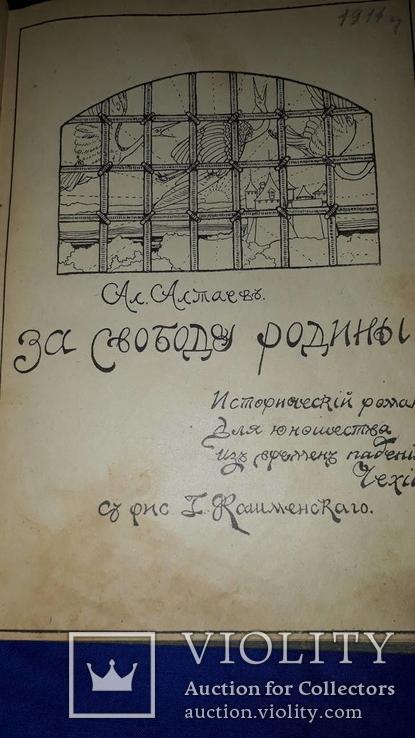 1911 г
Ал. Алтаевъ.
За свободу родины
Историческій рома
для юношества
изъ временъ паденія
Чехіи
съ рис Г. Кошменскаго.
VIOLITY
Auction for Collectors
auction.violity.com